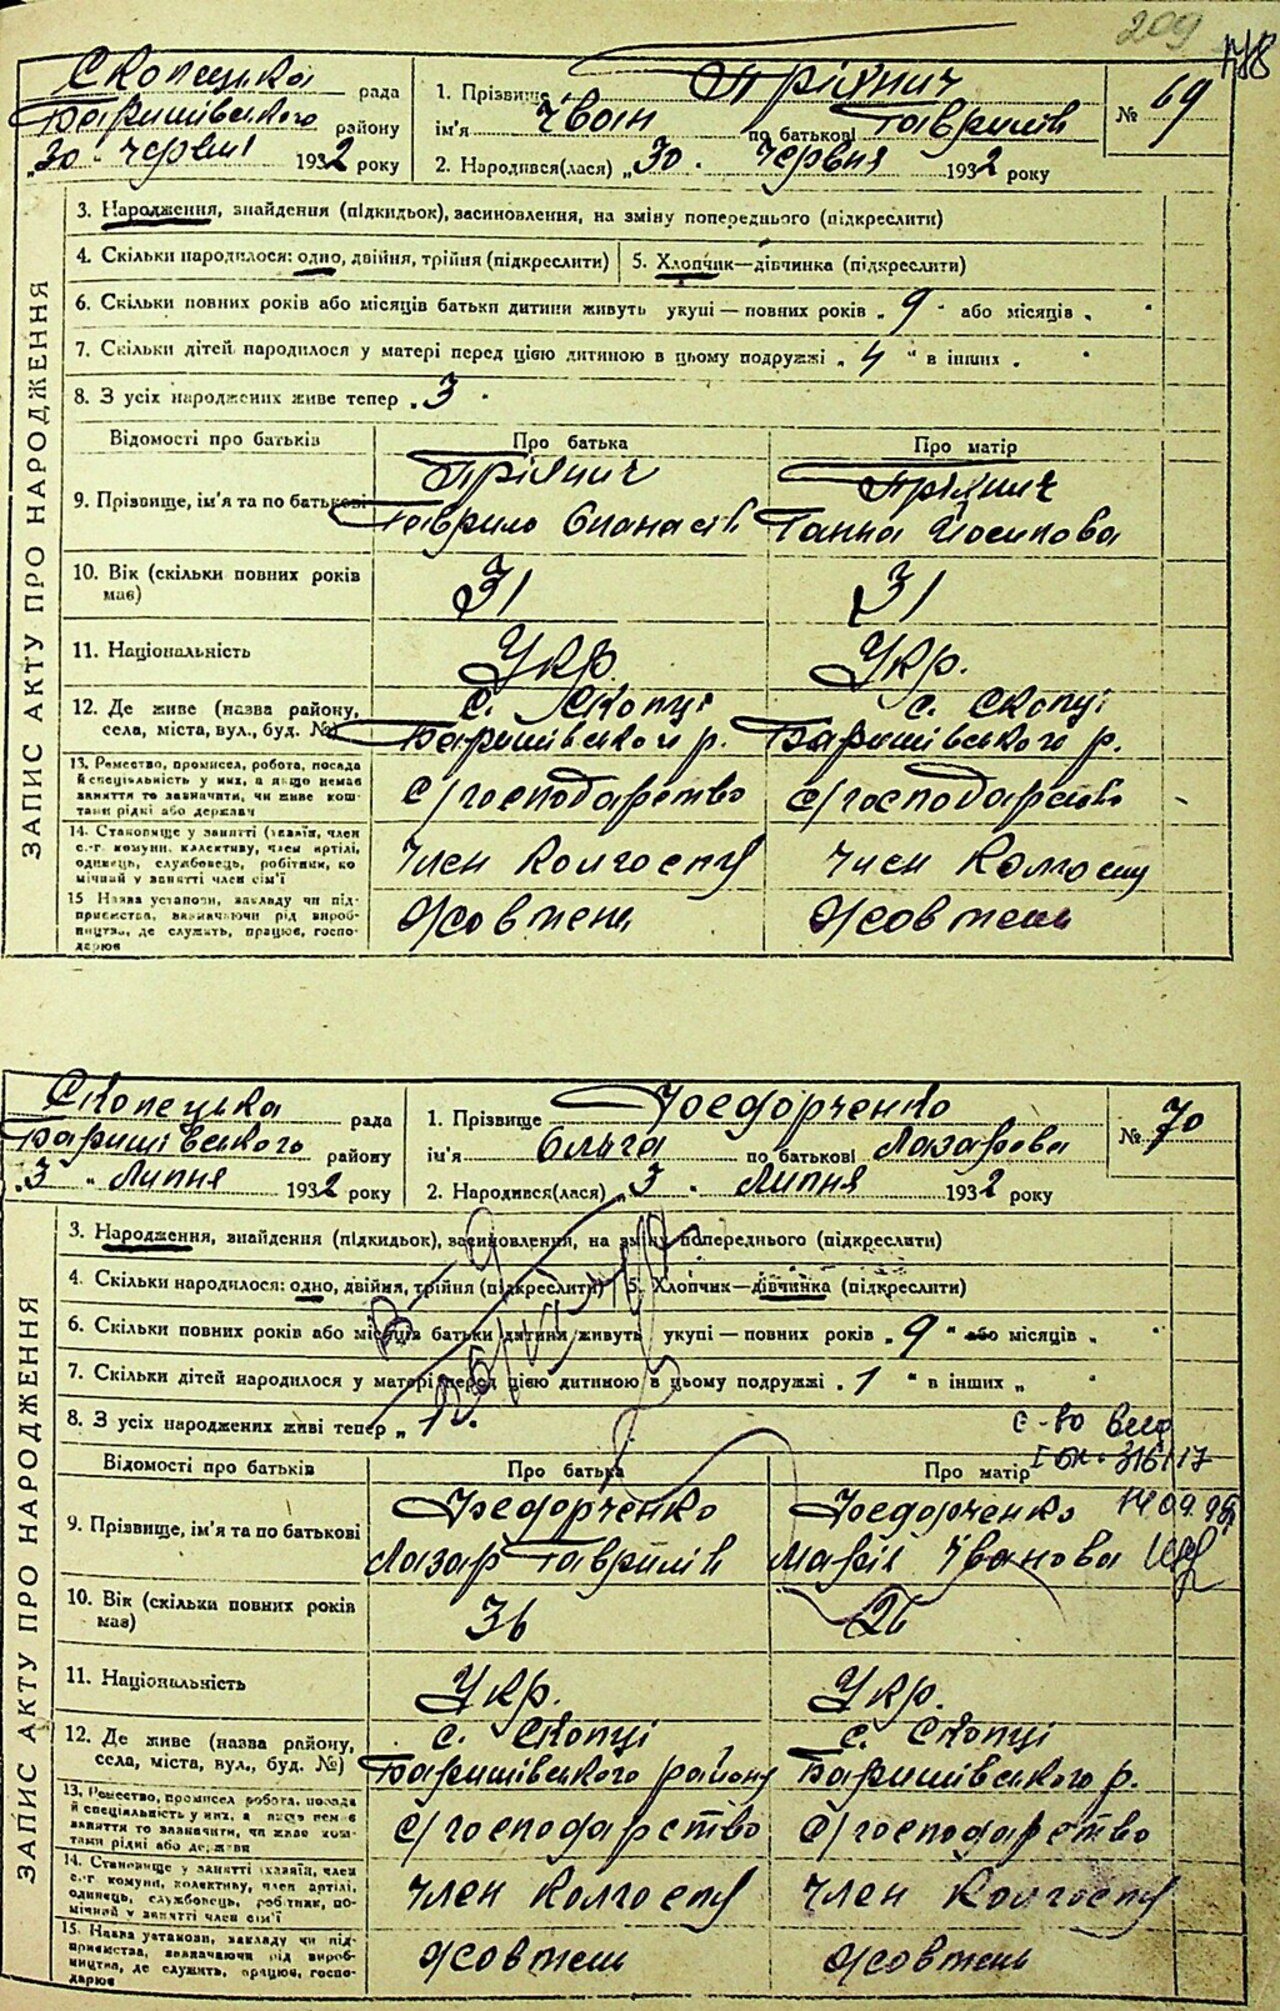 209
Скопецька рада
Баришівського району
"30" червня 1932 року
1. Прізвище Пріхнич
ім'я Іван по батькові Гаврилів
2. Народився(лася) "30" Червня 1932 року
№ 69
ЗАПИС АКТУ ПРО НАРОДЖЕННЯ
3. Народження, знайдення (підкидьок), засиновлення, на зміну попереднього (підкреслити)
4. Скільки народилося: одно, двійня, трійня (підкреслити) 5. Хлопчик—дівчинка (підкреслити)
6. Скільки повних років або місяців батьки дитини живуть укупі — повних років „ 9 " або місяців „ "
7. Скільки дітей народилося у матері перед цією дитиною в цьому подружжі „ 4 " в інших „ "
8. З усіх народжених живе тепер „ 3 "
Відомості про батьків Про батька Про матір
9. Прізвище, ім'я та по батькові
Пріхнич Пріхнич
Гаврило Опанасів Ганна Йосипова
10. Вік (скільки повних років має) 31 31
11. Національність Укр. Укр.
12. Де живе (назва району, с. Скопці с. Скопці
села, міста, вул., буд. №) Баришівського р. Баришівського р.
13. Ремество, промисел, робота, посада
й спеціальність у них, а якщо немає
заняття то зазначити, чи живе кош-
тами рідні або держави
с/господарство с/господарство
14. Становище у занятті (хазяїн, член
с.-г комуни, колективу, член артілі,
одинець, службовець, робітник, по
мічний у занятті член сім'ї
член колгоспу член колгоспу
15 Назва установи, закладу чи під-
приємства, зазначаючи рід вироб-
ництва, де служить, працює, госпо-
дарює
Жовтень Жовтень
Скопецька рада
Баришівського району
"3" Липня 1932 року
1. Прізвище Федорченко
ім'я Ольга по батькові Лазарова
2. Народився(лася) "3" Липня 1932 року
№ 70
ЗАПИС АКТУ ПРО НАРОДЖЕННЯ
3. Народження, знайдення (підкидьок), засиновлення, на зміну попереднього (підкреслити)
4. Скільки народилося: одно, двійня, трійня (підкреслити) 5. Хлопчик—дівчинка (підкреслити)
6. Скільки повних років або місяців батьки дитини живуть укупі — повних років „ 9 " або місяців „ "
7. Скільки дітей народилося у матері перед цією дитиною в цьому подружжі „ 1 " в інших „ "
8. З усіх народжених живі тепер „ 1 "
Відомості про батьків Про батька Про матір
9. Прізвище, ім'я та по батькові
Федорченко Федорченко
Лазар Гаврилів Марія Іванова
10. Вік (скільки повних років має) 36 26
11. Національність Укр. Укр.
12. Де живе (назва району, с. Скопці с. Скопці
села, міста, вул., буд. №) Баришівського району Баришівського р.
13. Ремество, промисел робота, посада
й спеціальність у них, а якщо немає
заняття то зазначити, чи живе кош-
тами рідні або держави
с/господарство с/господарство
14. Становище у занятті хазяїн, член
с.-г комуни, колективу, член артілі,
одинець, службовець, робітник, по-
мічний у занятті член сім'ї
член колгоспу член колгоспу
15. Назва установи, закладу чи під-
приємства, зазначаючи рід вироб-
ництва, де служить, працює, госпо-
дарює
Жовтень Жовтень